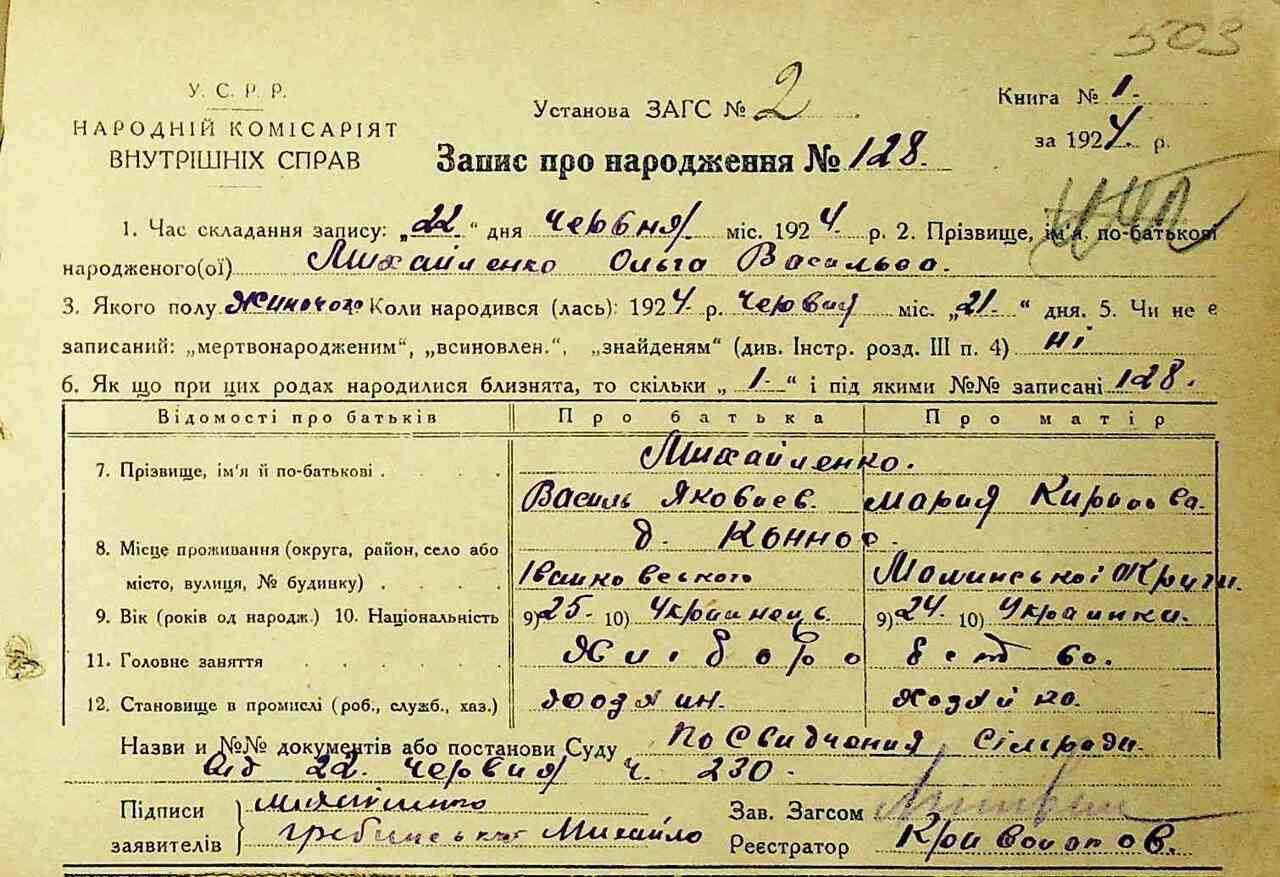 503
У. С. Р. Р.
НАРОДНІЙ КОМІСАРІЯТ
ВНУТРІШНІХ СПРАВ
Установа ЗАГС № 2
Книга № 1-
за 1924 р.
Запис про народження № 128.
1. Час складання запису: „22“ дня червня міс. 1924 р. 2. Прізвище, ім'я, по-батькові
народженого(ої) Михайленко Ольга Васильва.
3. Якого полу жиночого Коли народився (лась): 1924 р. червня міс. „21“ дня. 5. Чи не є
записаний: „мертвонародженим“, „всиновлен.“, „знайденям“ (див. Інстр. розд. III п. 4) ні
6. Як що при цих родах народилися близнята, то скільки „ 1- “ і під якими №№ записані 128.
Відомості про батьків Про батька Про матір
7. Прізвище, ім'я й по-батькові . Михайленко.
Василь Яковлев. Мария Кирилова.
8. Місце проживання (округа, район, село або д.
місто, вулиця, № будинку) .
9. Вік (років од народж.) 10. Національність 9) 25- 10) Украинець. 9) 24- 10) Украинка.
11. Головне заняття Хліборобство.
12. Становище в промислі (роб., служб., хаз.) хозяин. хозяйка.
Назви и №№ документів або постанови Суду Посвидчения Сілмради
від 22 червня ч. 230-
Підписи Михайленко
заявителів Михайло
Зав. Загсом
Реєстратор